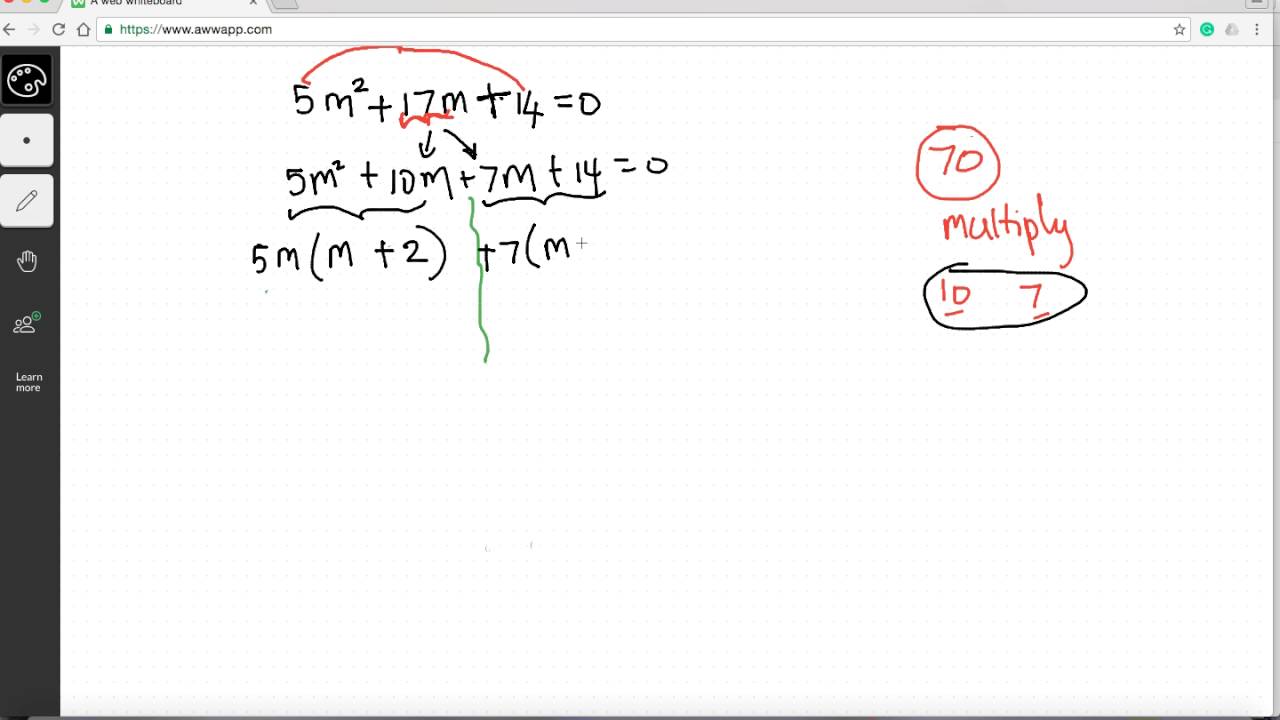 A web whiteboard
https://www.awwapp.com
5m² + 17m + 14 = 0
5m² + 10m + 7m + 14 = 0
5m(m + 2) + 7(m +
70
multiply
10 7
Learn
more